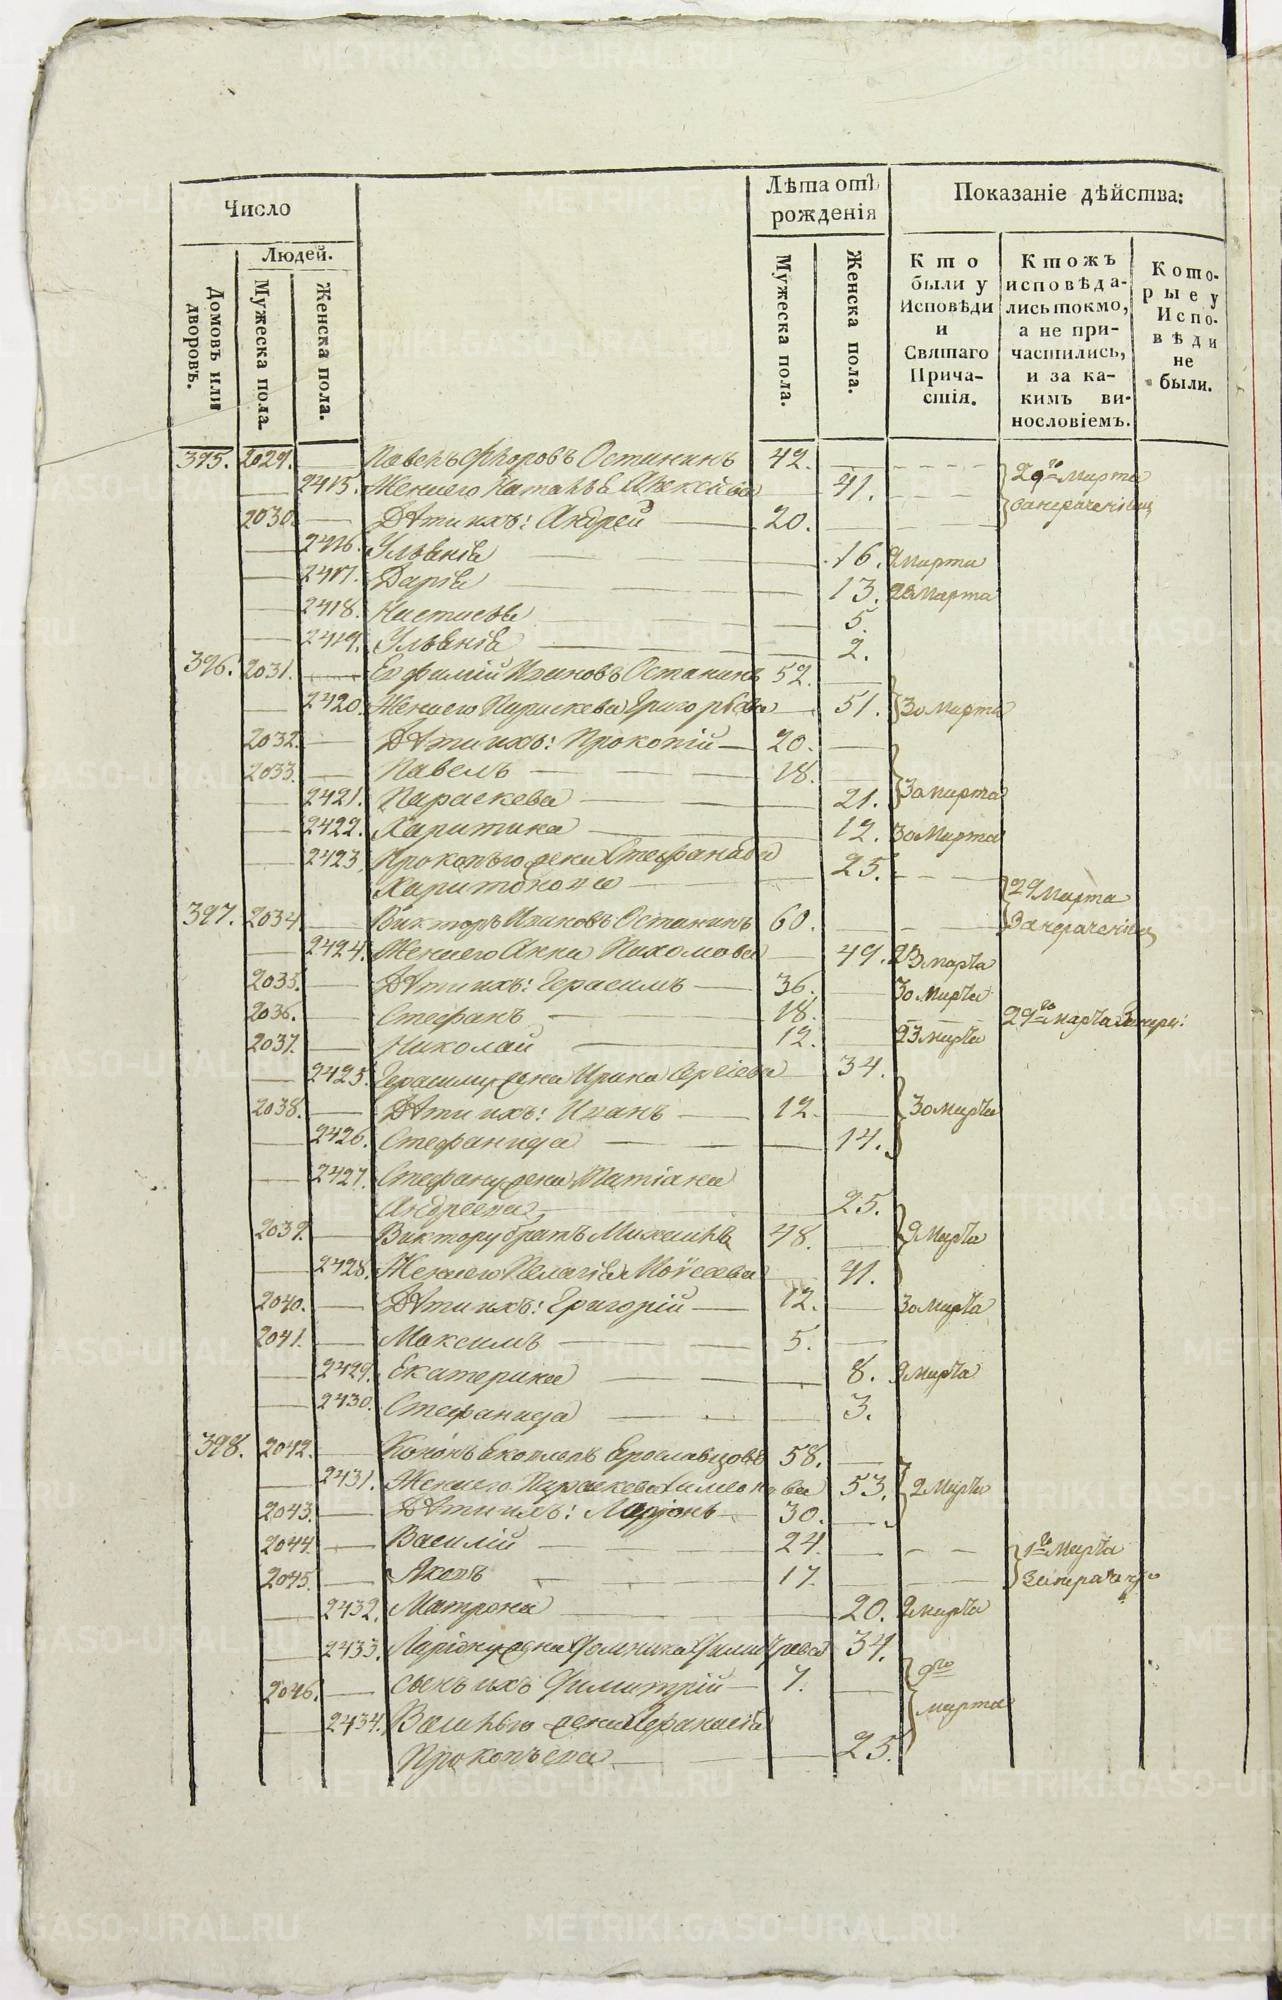 Число
Людей.
Домовъ или дворовъ.
Мужеска пола.
Женска пола.
Лѣта отъ рожденія
Мужеска пола.
Женска пола.
Показаніе дѣйства:
Кто были у Исповѣди и Святаго Причастія.
Ктожъ исповѣдались токмо, а не причастились, и за какимъ винословіемъ.
Которые у Исповѣди не были.
395. 2029. Павелъ Ѳедоровъ Останинъ 42.
2415. Жена его Наталья Алексѣева 41. 29го Марта
2030. Дѣти ихъ: Андрей 20.
2416. Ульянія 16. 2 Марта
2417. Дарія 13. Марта
2418. Настасья 5.
2419. Ульянія 2.
396. 2031. Евфимій Ивановъ Останинъ 52.
2420. Жена его Параскева Григорьева 51. 30 Марта
2032. Дѣти ихъ: Прокопій 20.
2033. Павелъ 18.
2421. Параскева 21. 30 марта
2422. Харитина 12. 30 Марта
2423. жена Стефанида
Харитонова 25. 29 Марта
397. 2034. Викторъ Ивановъ Останинъ 60.
2424. Жена его Анна Пахомова 49. 23 марта
2035. Дѣти ихъ: Герасимъ 36. 30 Марта
2036. Стефанъ 18. 29го марта
2037. Николай 12. 23 марта
2425. Герасиму жена Ирина Сергіева 34.
2038. Дѣти ихъ: Иванъ 12. 30 марта
2426. Стефанида 14.
2427. Стефану жена Татіана
Андреева 25.
2039. Виктору братъ Михаилъ 48. 9 Марта
2428. Жена его Пелагія Моисеева 41.
2040. Дѣти ихъ: Григорій 12. 30 Марта
2041. Максимъ 5.
2429. Екатерина 8. 9 марта
2430. Стефанида 3.
398. 2042. Кононъ 58.
2431. Жена его Параскева Симеонова 53. 2 Марта
2043. Дѣти ихъ: Ларіонъ 30.
2044. Василій 24. 1го Марта
2045. Яковъ 17.
2432. Матрона 20. 2 марта
2433. Ларіону жена Домника 34.
2046. сынъ ихъ Димитрій 7. 9го марта
2434. жена
Прокопьева 25.
METRIKI.GASO-URAL.RU